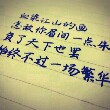 如你江山的画
怎敌你眉间一点朱
负了天下也罢
始终不过一场繁华